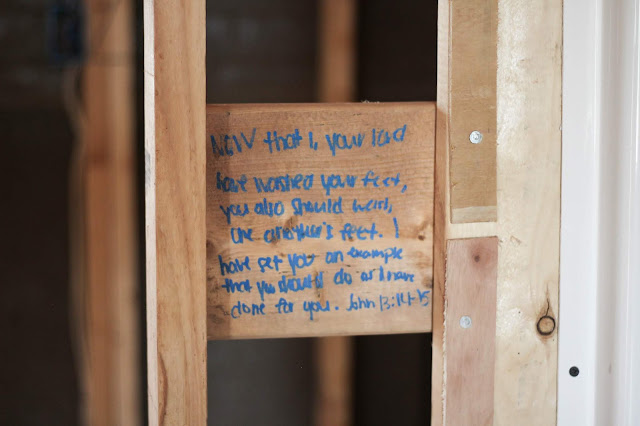 NOW that I, your lord
have washed your feet,
you also should wash
one another's feet. I
have set you an example
that you should do as I have
done for you. John 13:14-15